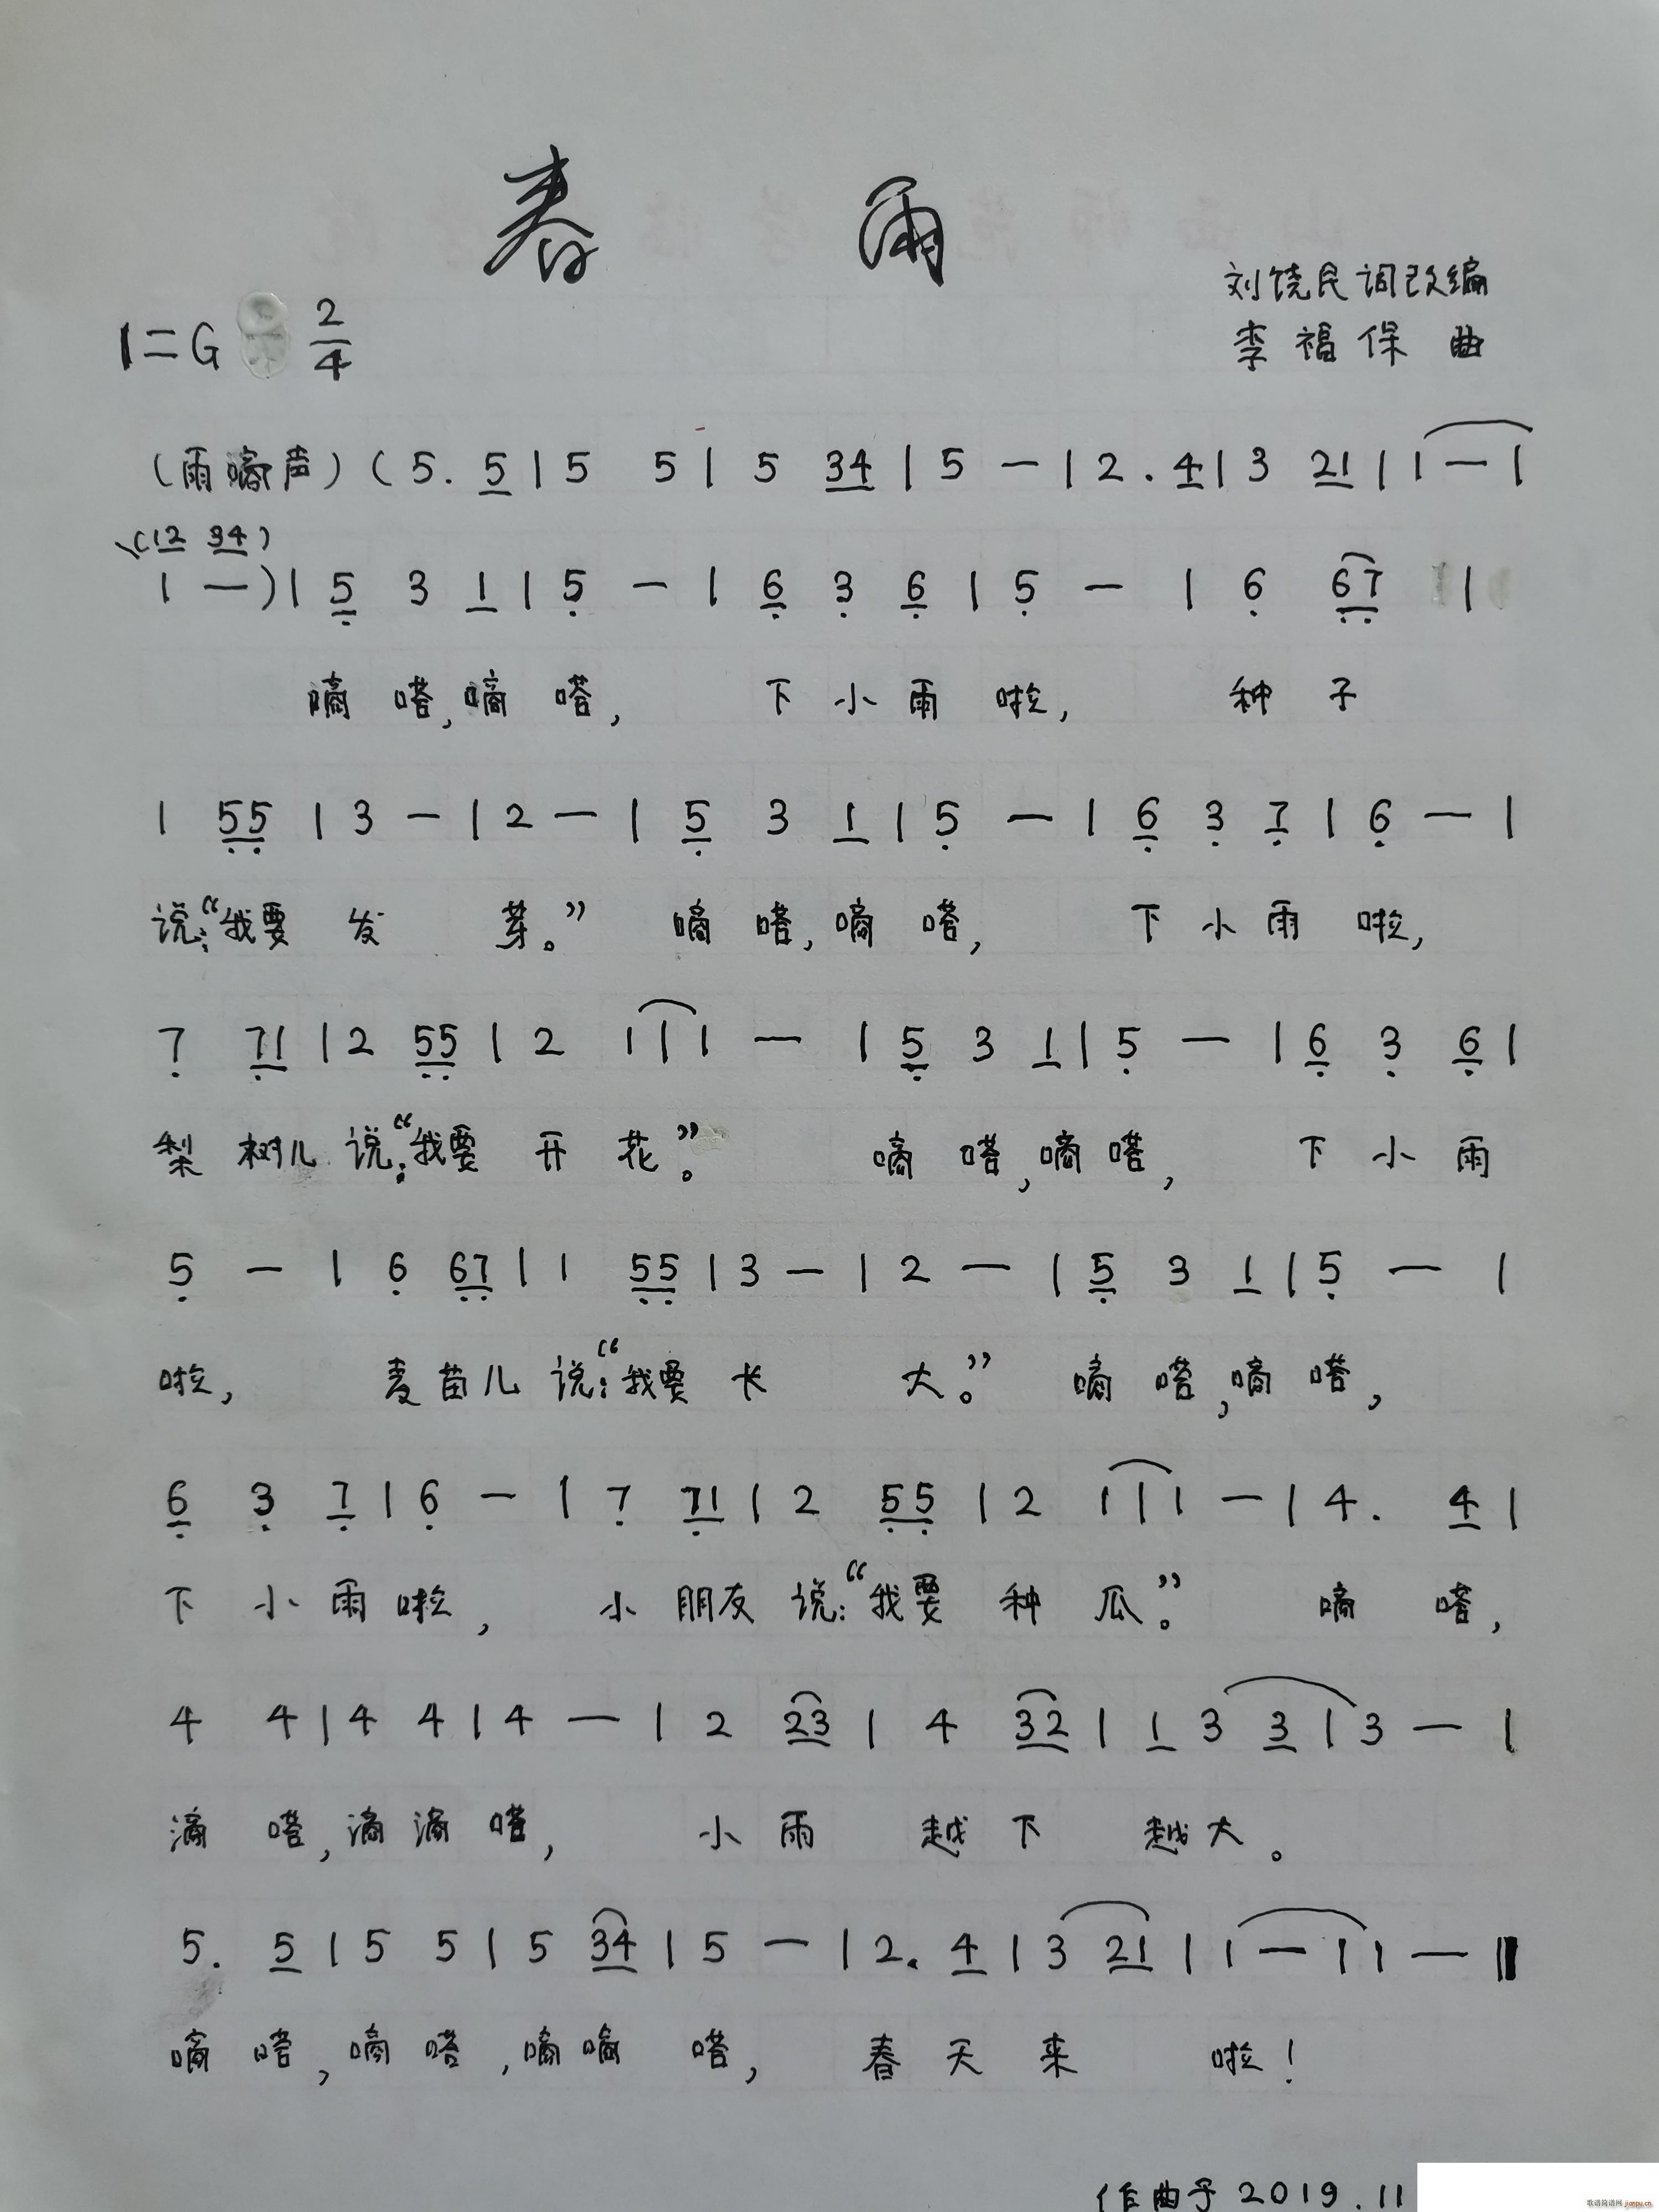 春 雨
刘饶民词改编
1=G 2/4
李福保 曲
(雨嘀声)(5. 5 | 5 5 | 5 34 | 5 — | 2. 4 | 3 21 | 1 — |
(12 34)
1 —) | 5 3 1 | 5 — | 6 3 6 | 5 — | 6 67 |
嘀 嗒,嘀 嗒, 下 小 雨 啦, 种 子
1 55 | 3 — | 2 — | 5 3 1 | 5 — | 6 3 7 | 6 — |
说:“我要 发 芽。” 嘀 嗒,嘀 嗒, 下 小 雨 啦,
7 71 | 2 55 | 2 1 | 1 — | 5 3 1 | 5 — | 6 3 6 |
梨 树儿 说:“我要 开 花”。 嘀 嗒,嘀 嗒, 下 小 雨
5 — | 6 67 | 1 55 | 3 — | 2 — | 5 3 1 | 5 — |
啦, 麦 苗儿 说:“我要 长 大。” 嘀 嗒,嘀 嗒,
6 3 7 | 6 — | 7 71 | 2 55 | 2 1 | 1 — | 4. 4 |
下 小 雨 啦, 小 朋友 说:“我要 种 瓜。” 嘀 嗒,
4 4 | 4 4 | 4 — | 2 23 | 4 32 | 1 3 3 | 3 — |
滴 嗒,滴 滴 嗒, 小 雨 越 下 越 大。
5. 5 | 5 5 | 5 34 | 5 — | 2. 4 | 3 21 | 1 — | 1 — ‖
嘀 嗒,嘀 嗒,嘀 嘀 嗒, 春 天 来 啦!
作曲于2019.11
歌谱简谱网 jianpu.cn